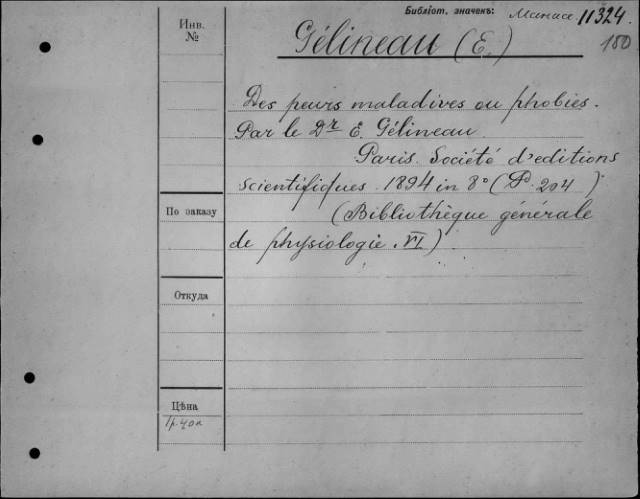 Библіот. значекъ: 11324.
150
Инв.
№
Gélineau (E.)
Des peurs maladives ou phobies.
Par le Dr E. Gélineau.
Paris. Société d'editions
scientifiques. 1894 in 8° (P. 204)
(Bibliothèque générale
de physiologie. VI)
По заказу
Откуда
Цѣна
1р. 40к